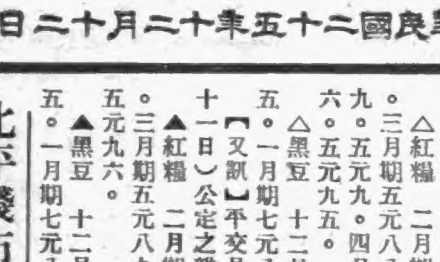 民國二十五年十二月十二日
△紅糧 二月
。三月期五元八
九。五元九。四月
六。五元九五。
△黑豆 十二
五。一月期七元
【又訊】平交
十一日)公定之
▲紅糧 二月
。三月期五元八
五元九六。
▲黑豆 十二月
五。一月期七元